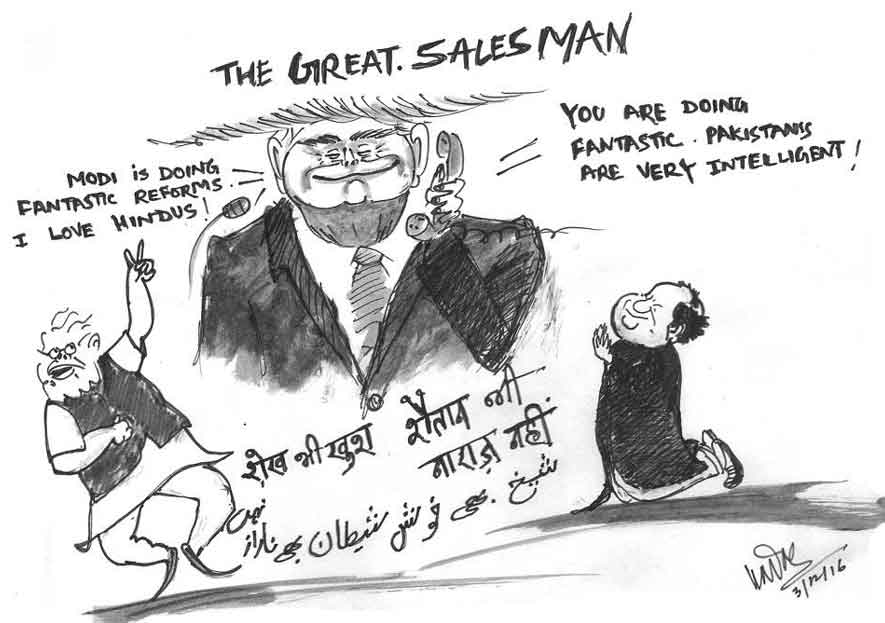 THE GREAT. SALESMAN
MODI IS DOING
FANTASTIC REFORMS.
I LOVE HINDUS!
YOU ARE DOING
FANTASTIC. PAKISTANIS
ARE VERY INTELLIGENT!
शेख भी खुश शैतान भी
नाराज़ नहीं
شیخ بھی خوش شیطان بھی ناراز
نہیں
3/12/16